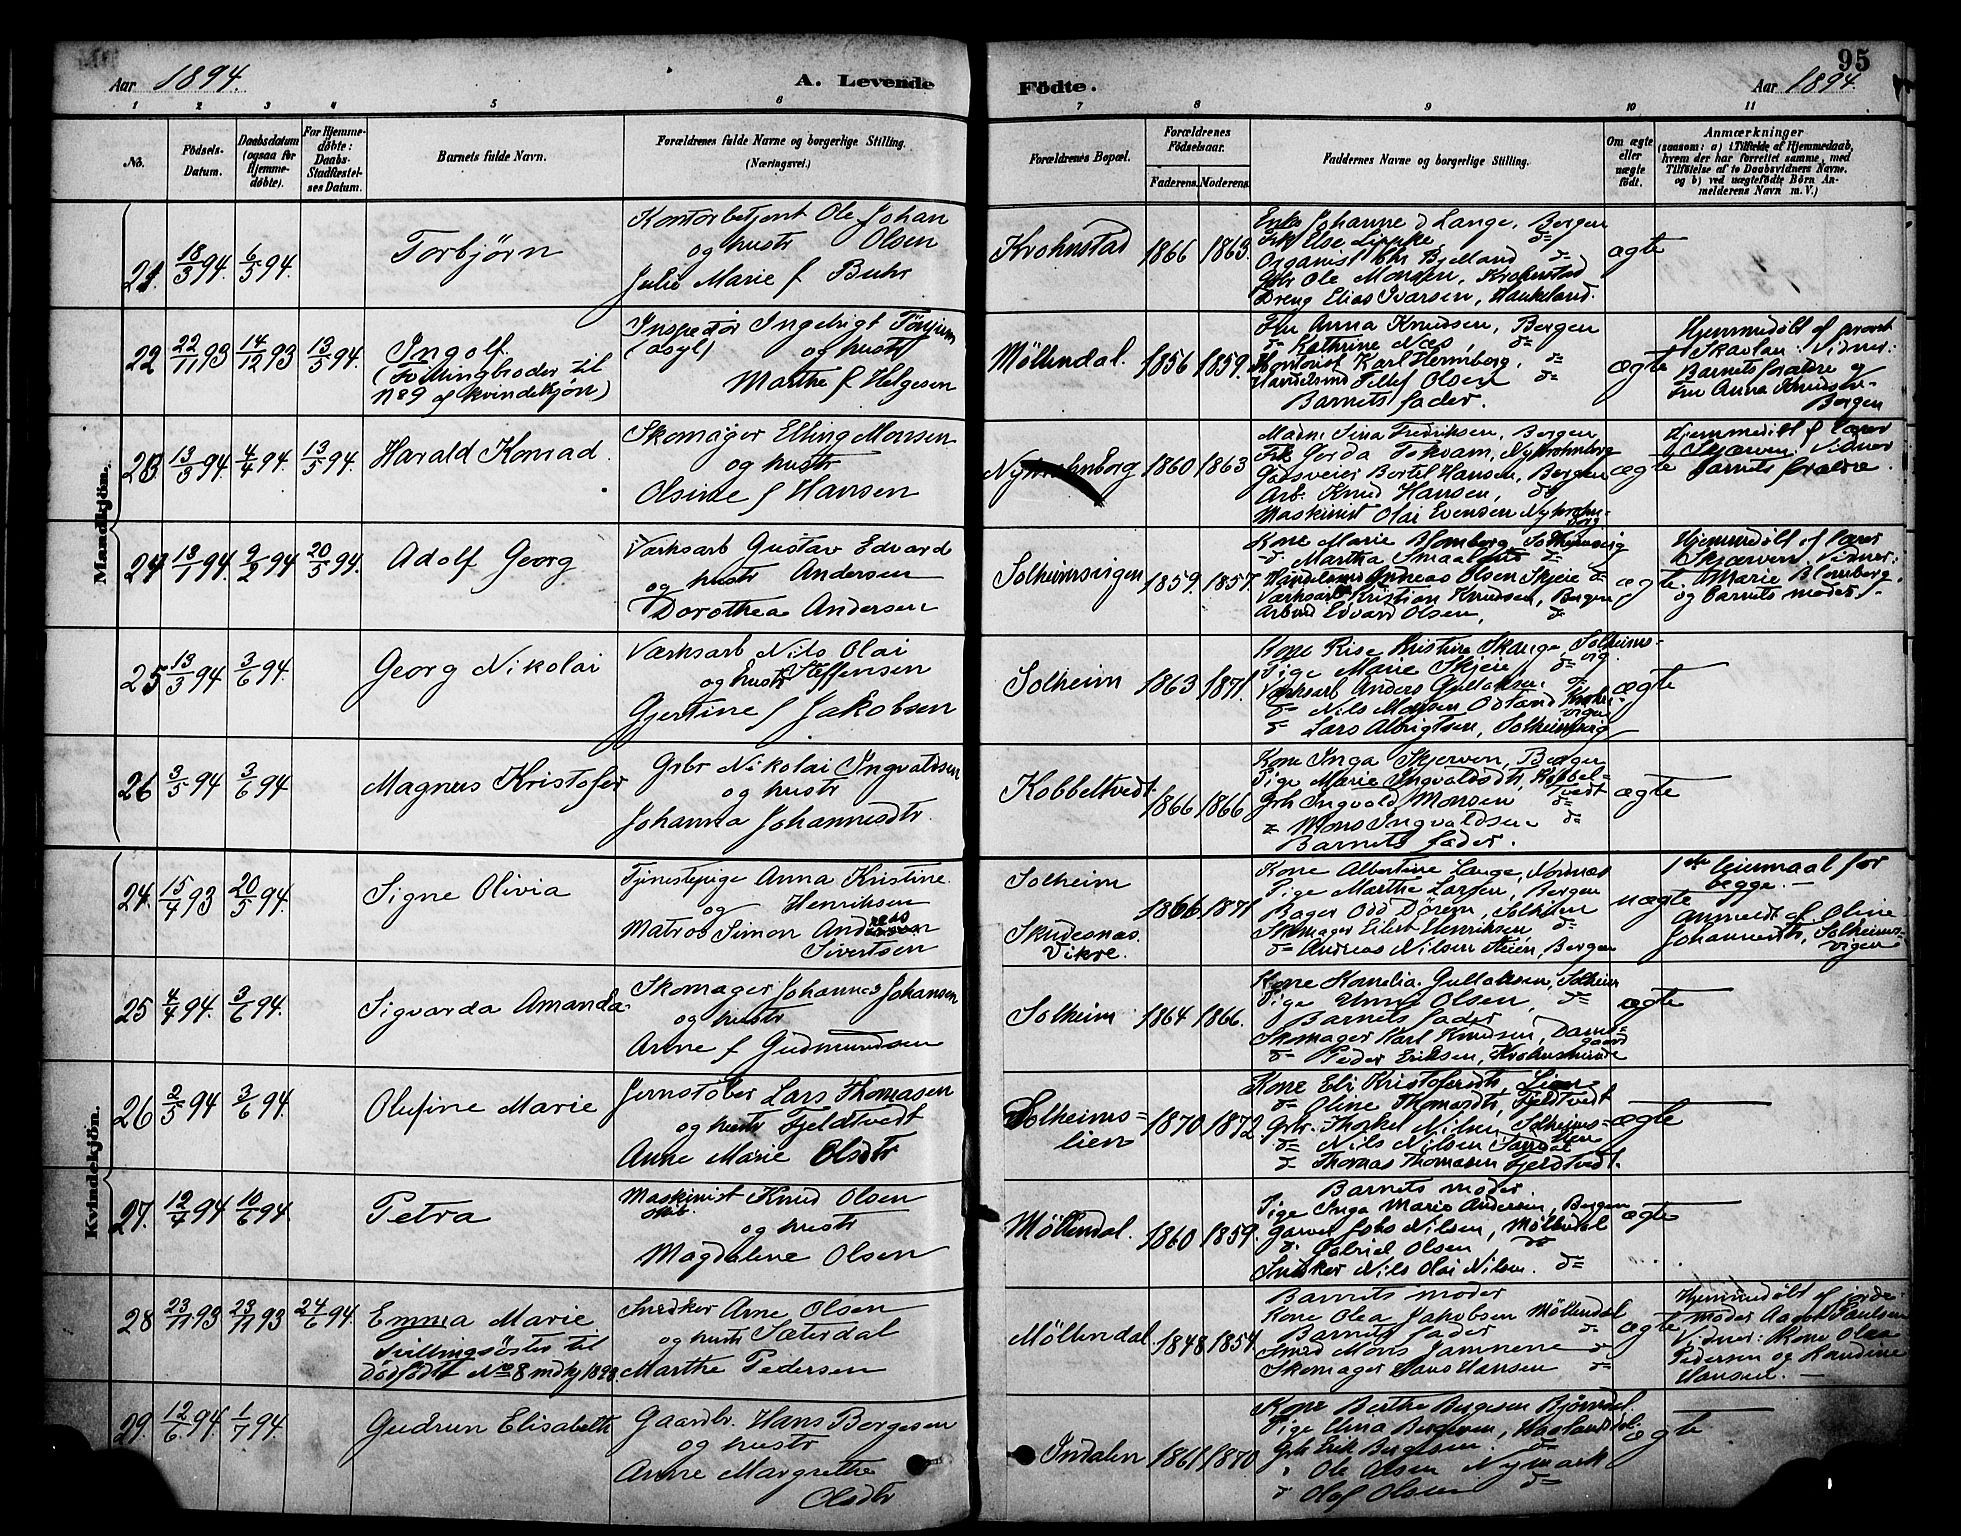 95
Aar 1894. A. Levende Födte. Aar 1894.
1 2 3 4 5 6 7 8 9 10 11
No.
Födsels-Datum.
Daabsdatum (ogsaa for Hjemme-döbte).
For Hjemme-döbte: Daabs-Stadfæstel-ses Datum.
Barnets fulde Navn.
Forældrenes fulde Navne og borgerlige Stilling. (Næringsvei.)
Forældrenes Bopæl.
Forældrenes Födselsaar.
Faderens. Moderens.
Faddernes Navne og borgerlige Stilling.
Om ægte eller uægte födt.
Anmærkninger
(saasom: a) i Tilfælde af Hjemmedaab,
hvem der har forrettet samme, med
Tilföielse af to Daabsvidners Navne.
og b) ved uægtefödte Börn An-
melderens Navn m. V.)
Mandkjön.
21 18/3 94. 6/5 94. Torbjörn
Kontorbetjent Ole Johan
og hustr Olsen
Julie Marie f Buhr
Krohnstad 1866 1863.
Enke Johanne d Lange, Bergen
Frk Else Lippke
Organist Chr Bjelland
Gbr Ole Monsen, Krohnstad
Dreng Elias Ivarsen, Haukeland.
ægte
22 22/11 93 14/12 93 13/5 94. Ingolf.
(Tvillingbroder til
N 89 af kvindekjön)
Inspektör Ingebrigt Tönjum
(asyl) og hustr
Marthe f Helgesen
Möllendal. 1856 1859.
Fru Anna Knudsen, Bergen
Kathrine Næs
Kontorist Karl Hermberg,
Handelsmd Tellef Olsen
Barnets fader.
ægte
Hjemmedöbt af provst
Skavlan. Vidner:
Barnets forældre og
Fru Anna Knudsen
Bergen
23 13/3 94. 4/4 94. 13/5 94. Harald Konrad.
Skomager Elling Monsen
og hustr
Olsine f Hansen
Nykrohnborg 1860 1863
Madm Sina Fredriksen, Bergen
Frk Gorda Tokvam, Nykrohnborg
Bertel Hansen, Bergen
Arb. Knud Hansen,
Maskinist Olai Evensen Nykrohn-
borg
ægte
Hjemmedöbt af lærer
Skjærven. Vidner
Barnets forældre.
24 13/1 94. 9/2 94 20/5 94. Adolf Georg
Værksarb Gustav Edvard
og hustr Andersen
Dorothea Andersen
Solheimsvigen 1859. 1857.
Kone Marie Blomberg Solheimsvig
Martha
Handelsmd Andreas Olsen Skjeie
Værksarb Kristian Knudsen, Bergen
Arbmd Edvard Olsen,
ægte
Hjemmedöbt af lærer
Skjærven. Vidner:
Marie Blomberg
og barnets moder.
25 13/3 94 3/6 94. Georg Nikolai
Værksarb Nils Olai
og hustr Steffensen
Gjertine f Jakobsen
Solheim 1863 1871.
Kone Kristine Skauge Solheims-
vig
Pige Marie Skjeie
Værksarb Anders Gullaksen
Nils Monsen
Lars Albrigtsen, Solheimsvig
ægte
26 3/5 94 3/6 94 Magnus Kristofer
Grbr Nikolai Ingvaldsen
og hustr
Johanna Johannesdtr.
Kobbeltvedt. 1866 1866
Kone Inga Skjerven, Bergen
Pige Marie Ingvaldsdtr, Kobbel-
tvedt
Grbr Ingvald Monsen
Mons Ingvaldsen
Barnets fader.
ægte
Kvindekjön.
24. 15/4 93 20/5 94. Signe Olivia
Tjenestepige Anna Kristine
og Henriksen
Matros Simon Andreas
Sivertsen
Solheim
Skudesnæs.
Vikre. 1866 1871
Kone Albertine Lange, Nordnæs
Pige Marthe Larsen, Bergen
Bager Odd
Skomager Eilert Henriksen
Andreas Nilsen Steien, Bergen
uægte
1ste leiermaal for
begge.
Anmeldt af Oline
Johannesdtr, Solheims-
vigen
25 4/4 94. 3/6 94. Sigvarda Amanda
Skomager Johannes Johansen
og hustr
Anne f Gudmundsen
Solheim 1864 1866.
Kone Kornelia Gullaksen, Solheim
Pige Anna Olsen,
Barnets fader
Skomager Karl Knudsen, Dams-
gaard
Peder Eriksen, Krohnsminde
ægte
26 2/5 94 3/6 94. Olufine Marie
Jernstöber Lars Thomasen
og hustr Fjeldtvedt
Anne Marie Olsdtr
Solheims-
lien 1870 1872
Kone Eli Kristofersdtr,
Oline Thomasdtr, Fjeldtvedt
Grbr. Thorkel Nilsen, Solheims-
lien
Nils Nilsen Sandal
Thomas Thomasen Fjeldtvedt.
ægte
27. 12/4 94 10/6 94. Petra
Maskinist Knud Olsen
og hustr
Magdalene Olsen
Möllendal. 1860 1859.
Barnets moder
Pige Inga Marie Andersen, Bergen
Garver Johs Nilsen, Möllendal
Gabriel Olsen
Snedker Nils Olai Nilsen.
ægte
28 23/11 93 23/11 93 24/6 94. Emma Marie
Tvillingsöster til
dödfödt No 8 mdkj 1893.
Snedker Arne Olsen
og hustr Sæterdal
Marthe Pedersen
Möllendal 1848 1854.
Barnets moder
Kone Olea Jakobsen Möllendal
Barnets fader
Smed Mons Jamnene
Skomager Hans Hansen
ægte
Hjemmedöbt af jorde-
moder Paulsen
Vidner: Kone Olea
Pedersen og Randine
Hansen.
29. 12/6 94. 1/7 94. Gudrun Elisabeth
Gaardbr. Hans Borgesen
og hustr
Anne Margrethe
Olsdtr
Indalen 1861 1870
Kone Berthe Borgesen Björndal.
Pige Anna Bergesen, Haukelandsdal
Grbr Erik Bergesen.
Ole Olsen Nymark
Olaf Olsen
ægte